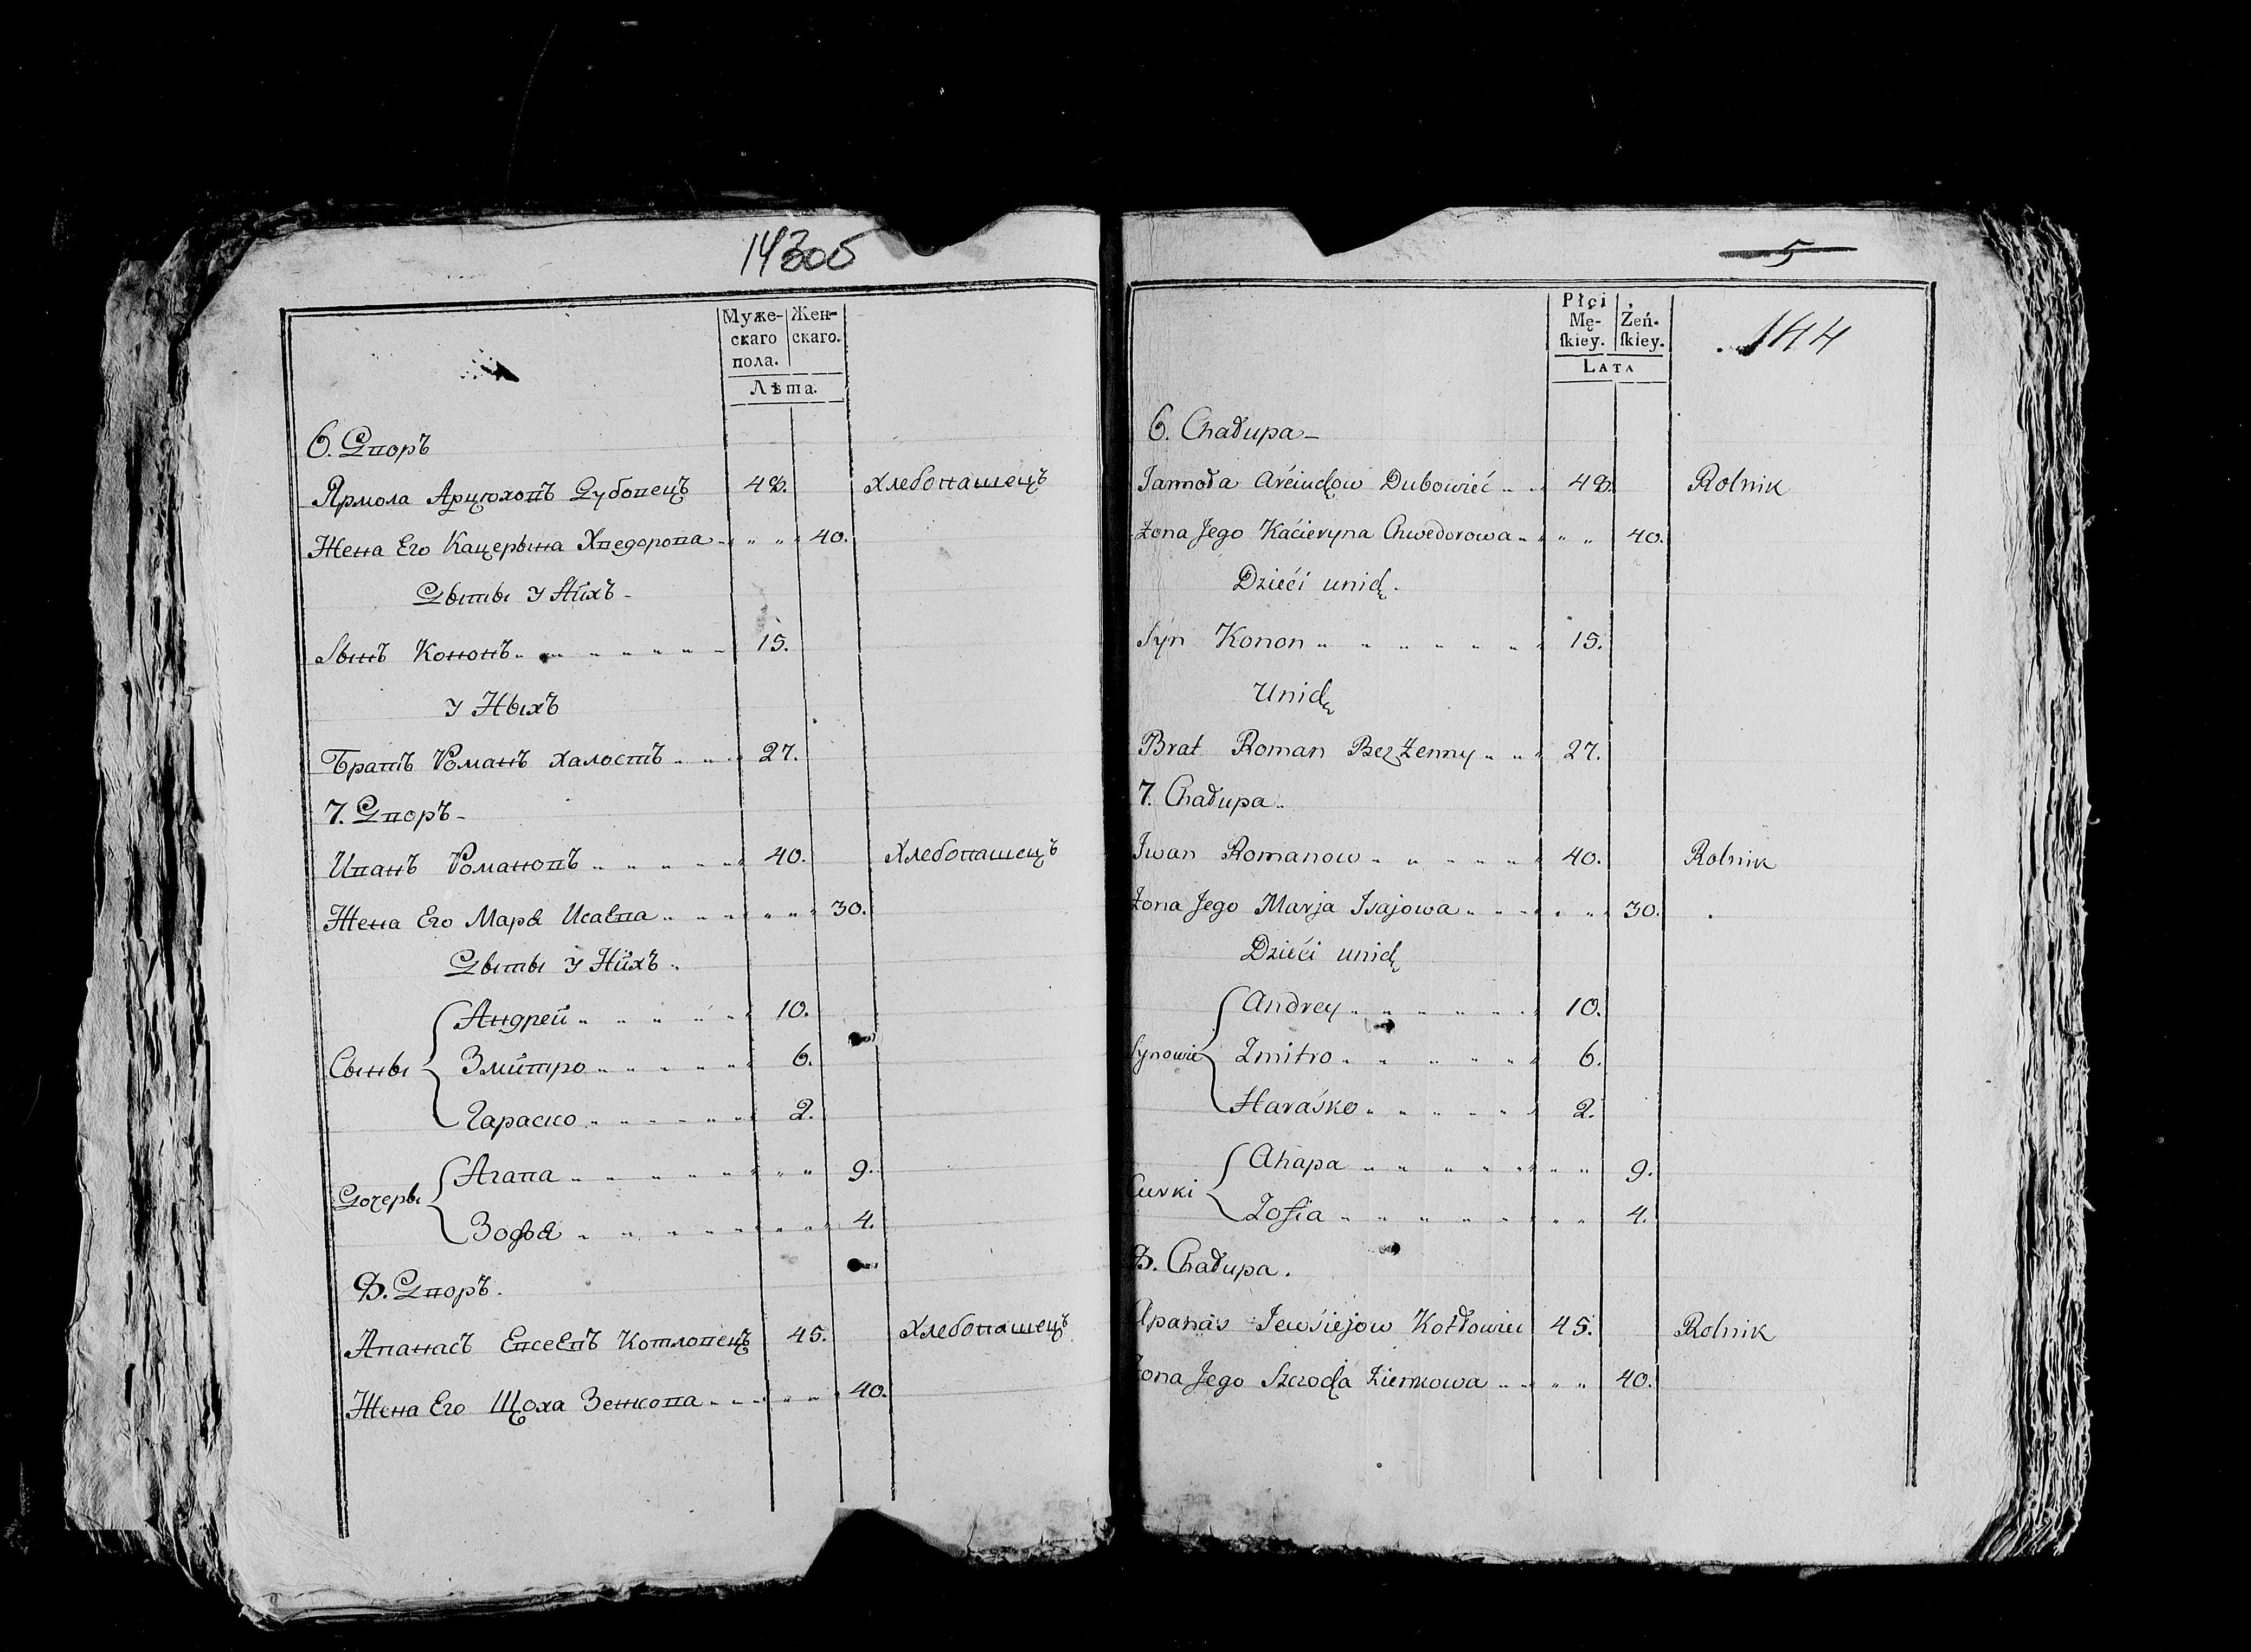 143об
Муже-
скаго
пола.
Жен-
скаго.
Лѣта.
6. Дворъ
Ярмола Арцюховъ Дубовецъ 48. хлебопашецъ
Жена Его Кацерына Хведорова „ „ 40.
Дѣты у Нихъ
Сынъ Кононъ 15.
у Ныхъ
Братъ Романъ халостъ 27.
7. Дворъ
Иванъ Романовъ 40. Хлебопашецъ
Жена Его Марья Исаева „ „ 30.
Дѣты у Нихъ
Сыны
Андрей 10.
Змитро 6.
Гараско 2.
Дочеры
Агапа „ „ 9.
Зофья „ „ 4.
8. Дворъ.
Апанасъ Евсеевъ Котловецъ 45. Хлебопашецъ
Жена Его Щоха Зенкова „ „ 40.
5
144
Płci
Mę-
skiey.
Żeń-
skiey.
LATA
6. Chałupa
Jarmoła Arciuchow Dubowiec 48. Rolnik
Żona Jego Kacieryna Chwedorowa „ „ 40.
Dzieci unich.
Syn Konon 15.
Unich
Brat Roman BezŻenny 27.
7. Chałupa
Iwan Romanow 40. Rolnik
Żona Jego Marja Isajowa „ „ 30.
Dzieci unich
Synowie
Andrey 10.
Zmitro 6.
Haraśko 2.
Curki
Ahapa „ „ 9.
Zofia „ „ 4.
8. Chałupa.
Apanas Jewsiejow Kotłowiec 45. Rolnik
Żona Jego Szczocha Zienkowa „ „ 40.